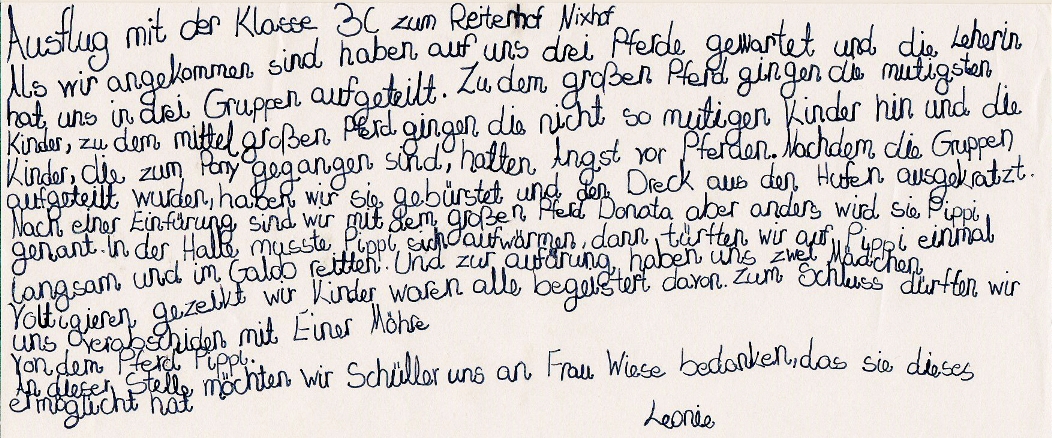 Ausflug mit der Klasse 3C zum Reiterhof Nixhof
Als wir angekommen sind haben auf uns drei Pferde gewartet und die Leherin
hat uns in drei Gruppen aufgeteilt. Zu dem großen Pferd gingen die mutigsten
Kinder, zu dem mittel großen Pferd gingen die nicht so mutigen Kinder hin und die
Kinder, die zum Pony gegangen sind, hatten Angst vor Pferden. Nachdem die Gruppen
aufgeteilt wurden, haben wir sie gebürstet und den Dreck aus den Hufen ausgekratzt.
Nach einer Einfürung sind wir mit dem großen Pferd Donata aber anders wird sie Pippi
genant. In der Halle musste Pippi sich aufwärmen, dann türften wir auf Pippi einmal
langsam und im Galdo reitten. Und zur aufürung, haben uns zwei Mädchen
Voltigieren gezeikt wir Kinder waren alle begeistert davon. Zum Schluss dürften wir
uns verabschiden mit Einer Möhre
von dem Pferd Pippi.
An dieser Stelle möchten wir Schüller uns an Frau Wiese bedanken, das sie dieses
ermöglicht hat
Leonie